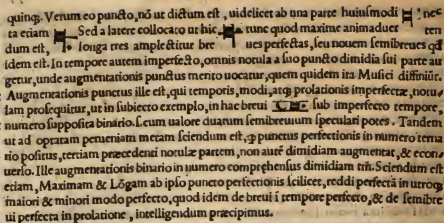 quinq;. Verum eo puncto, nõ ut dictum est, uidelicet ab una parte huiusmodi nec
ta etiam Sed a latere collocato ut hic tunc quod maxime animaduer ten
dum est, longa tres amplectitur bre ues perfectas, seu nouem semibreues qď
idem est. In tempore autem imperfecto, omnis notula a suo puncto dimidia sui parte au
getur, unde augmentationis punctus merito uocatur, quem quidem ita Musici diffiniũt.
Augmentationis punctus ille est, qui temporis, modi, atq; prolationis imperfectæ, notu
lam prosequitur, ut in subiecto exemplo, in hac breui sub imperfecto tempore,
numero supposita binario. Lecum ualore duarum semibreuium speculari potes. Tandem
ut ad optatam perueniam metam sciendum est, ꝙ punctus perfectionis in numero terna
rio positus, tertiam præcedenti notulæ partem, non aurẽ dimidiam augmentat, & econ
uerso. Ille augmentationis binario in numero comprehensus dimidiam tm̃. Sciendum est
etiam, Maximam & Lõgam ab ipso puncto perfectionis scilicet, reddi perfectã in utroq;
maiori & minori modo perfecto, quod idem de breui ĩ tempore perfecto, & de semibre
ui perfecta in prolatione, intelligendum præcipimus.